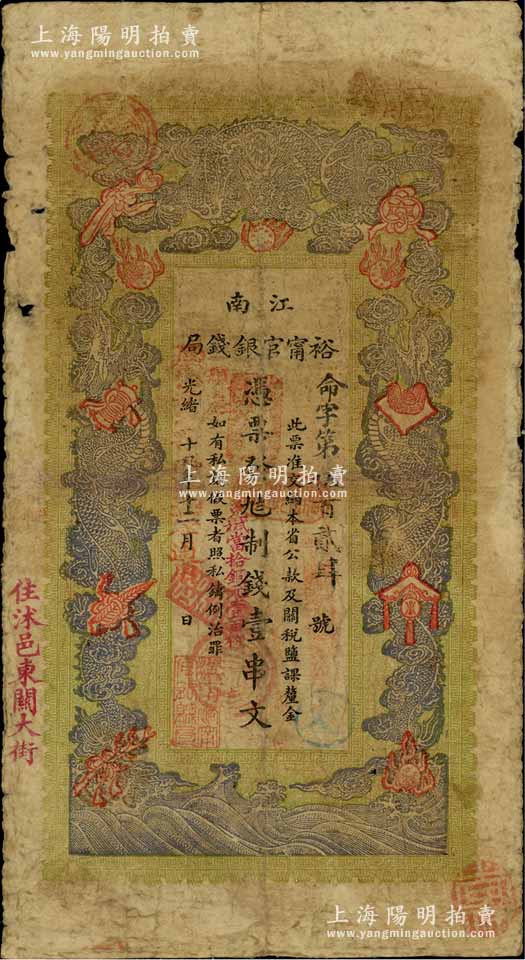 上海陽明拍賣
www.yangmingauction.com
江南
裕甯官銀錢局
命字第 百貳肆 號
此票准交納本省公款及關稅鹽課釐金
憑票發兌制錢壹串文
當拾銅元
如有私造假票者照私鑄例治罪
光緒 十 年十二月 日
住沭邑東關大街
上海陽明拍賣
www.yangmingauction.com
上海陽明拍賣
www.yangmingauction.com